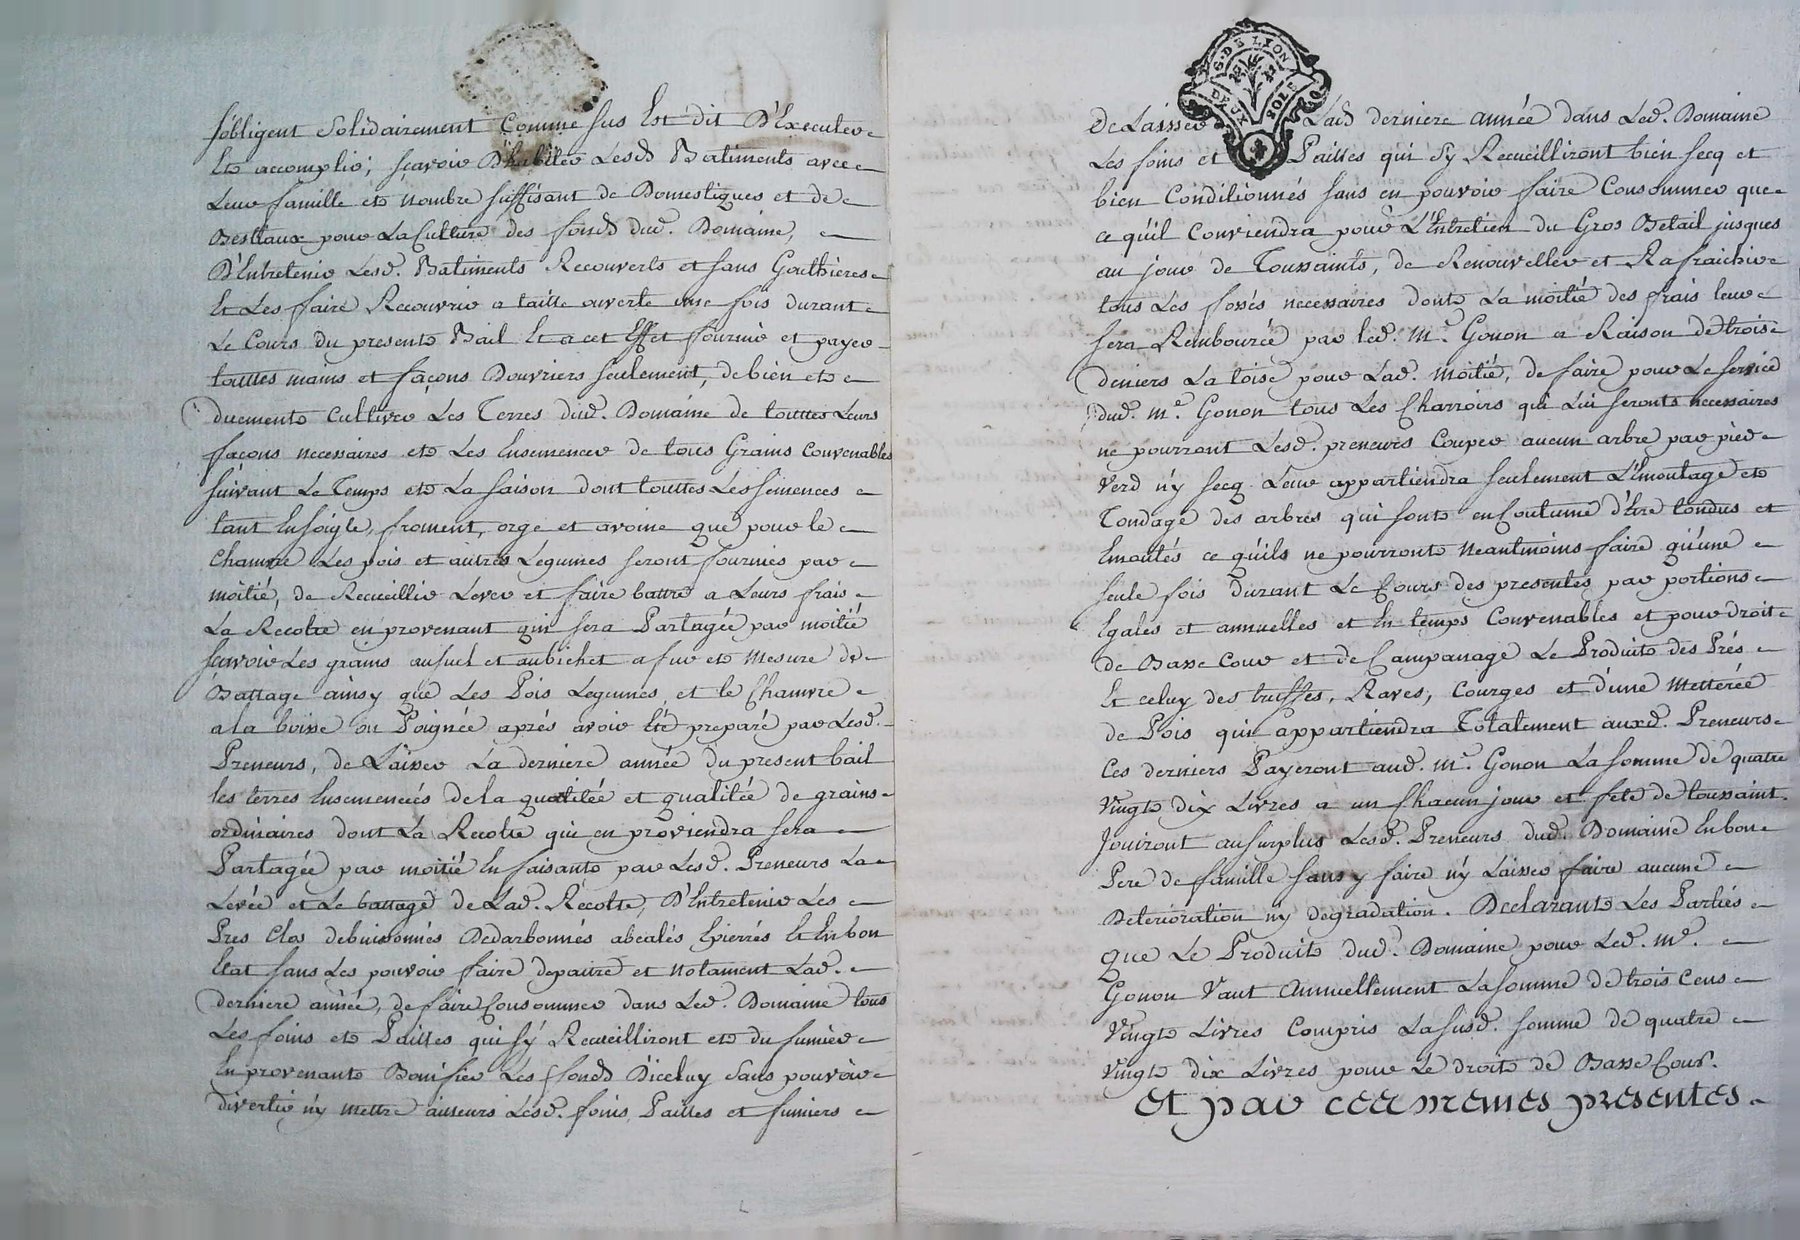 s'obligent Solidairement Comme sus Est dit D'Executer
Et accomplir; sçavoir D'habiter Lesd Batiments avec
Leur famille et nombre suffisant de Domestiques et de
Bestiaux pour La Culture des fonds dud. Domaine,
D'Entretenir Lesd. Batiments Recouverts et sans Gouthieres
Et Les faire Recouvrir a taille ouverte une fois durant
Le Cours du present Bail Et a cet Effet fournir et payer
touttes mains et façons Douvriers seulement, de bien et
duement Cultiver Les Terres dud. Domaine de touttes Leurs
façons necessaires et Les Ensemencer de tous Grains Convenables
suivant Le Temps et La saison dont touttes Les semences
tant En soigle, froment, orge et avoine que pour le
Chanvre Les pois et autres Legumes seront fournies par
moitié, de Recueillir Lever et faire battre a Leurs frais
La Recolte en provenant qui sera Partagée par moitié
sçavoir Les grains au suel et au bichet a fur et Mesure de
Battage ainsy que Les Pois Legumes et le Chanvre
a la boisse ou Poignée aprés avoir Eté preparé par Lesd.
Preneurs, de Laisser La derniere année du present bail
les terres Ensemencées de la quatitée et qualitée de grains
ordinaires dont La Recolte qui en proviendra sera
Partagée par moitié En faisant par Lesd. Preneurs La
Levée et Le battage de Lad. Recolte, D'Entretenir Les
Pres Clos debuissonnés Dedarbonnés abealés Epierrés Et En bon
Etat sans Les pouvoir faire depaitre et Notament Lad.
derniere année, de faire Consommer dans Led. Domaine tous
Les foins et Pailles qui s'y Recueilliront et du fumier
En provenant Bonifier Les ffonds D'iceluy Sans pouvoir
divertir n'y Mettre ailleurs Lesd. foins Pailles et fumiers
G. DE LYON
DEUX SOLS
De Laisser Lad derniere année dans Led. Domaine
Les foins et Pailles qui s'y Recueilliront bien secq et
bien Conditionnés sans en pouvoir faire Consommer que
ce qu'il Conviendra pour L'Entretien du Gros Betail jusques
au jour de Toussaints, de Renouveller et Rafraichir
tous Les fossés necessaires dont La moitié des frais leur
sera Rembourcé par led. Mr. Gonon a Raison de trois
deniers La toise pour Lad. Moitié, de faire pour Le service
dud. Mr. Gonon tous Les Charroirs qui Lui seront necessaires
ne pourront Lesd. preneurs Couper aucun arbre par pied
Verd n'y secq. Leur appartiendra seulement L'Emoutage et
Tondage des arbres qui sont en Coutume d'être tondus et
Emoutés ce qu'ils ne pourront Neantmoins faire qu'une
seule fois durant Le Cours des presentes par portions
Egales et annuelles et En temps Convenables et pour droit
de Basse Cour et de Campanage Le Produit des Prés
Et celuy des truffes, Raves, Courges et d'une Metterée
de Pois qui appartiendra Totalement auxd. Preneurs
Ces derniers Payeront aud. Mr. Gonon La somme de quatre
Vingt dix Livres a un Chacun jour et fete de toussaint.
Jouiront au surplus Lesd. Preneurs dud. Domaine En bon
Pere de famille sans y faire n'y Laisser faire aucune
Deterioration n'y degradation. Declarant Les Parties
que Le Produit dud. Domaine pour Led. Mr.
Gonon Vaut Annuellement La somme de trois Cens
Vingt Livres Compris La susd. somme de quatre
Vingt dix Livres pour Le droit de Basse Cour.
Et par ces memes presentes